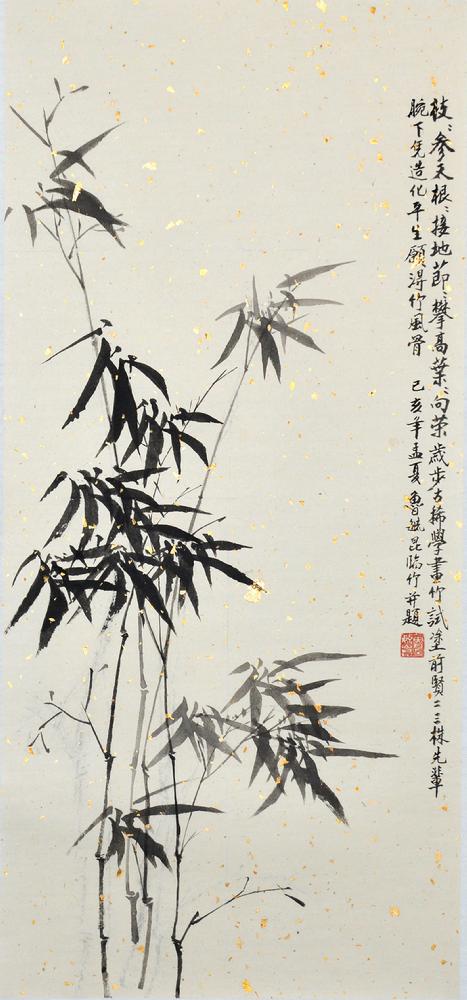 枝〻参天根〻接地節〻攀高葉〻向荣歲步古稀學畫竹試塗前賢二三株先輩
腕下凭造化平生願得竹風骨 己亥年孟夏魯 昆临竹并題